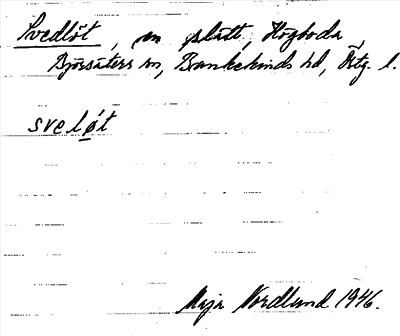 Svedlöt, en slätt, Högboda,
Björsäters sn, Bankekinds hd, Östg. l.
svelø̱t
Maja Nordlund 1946.